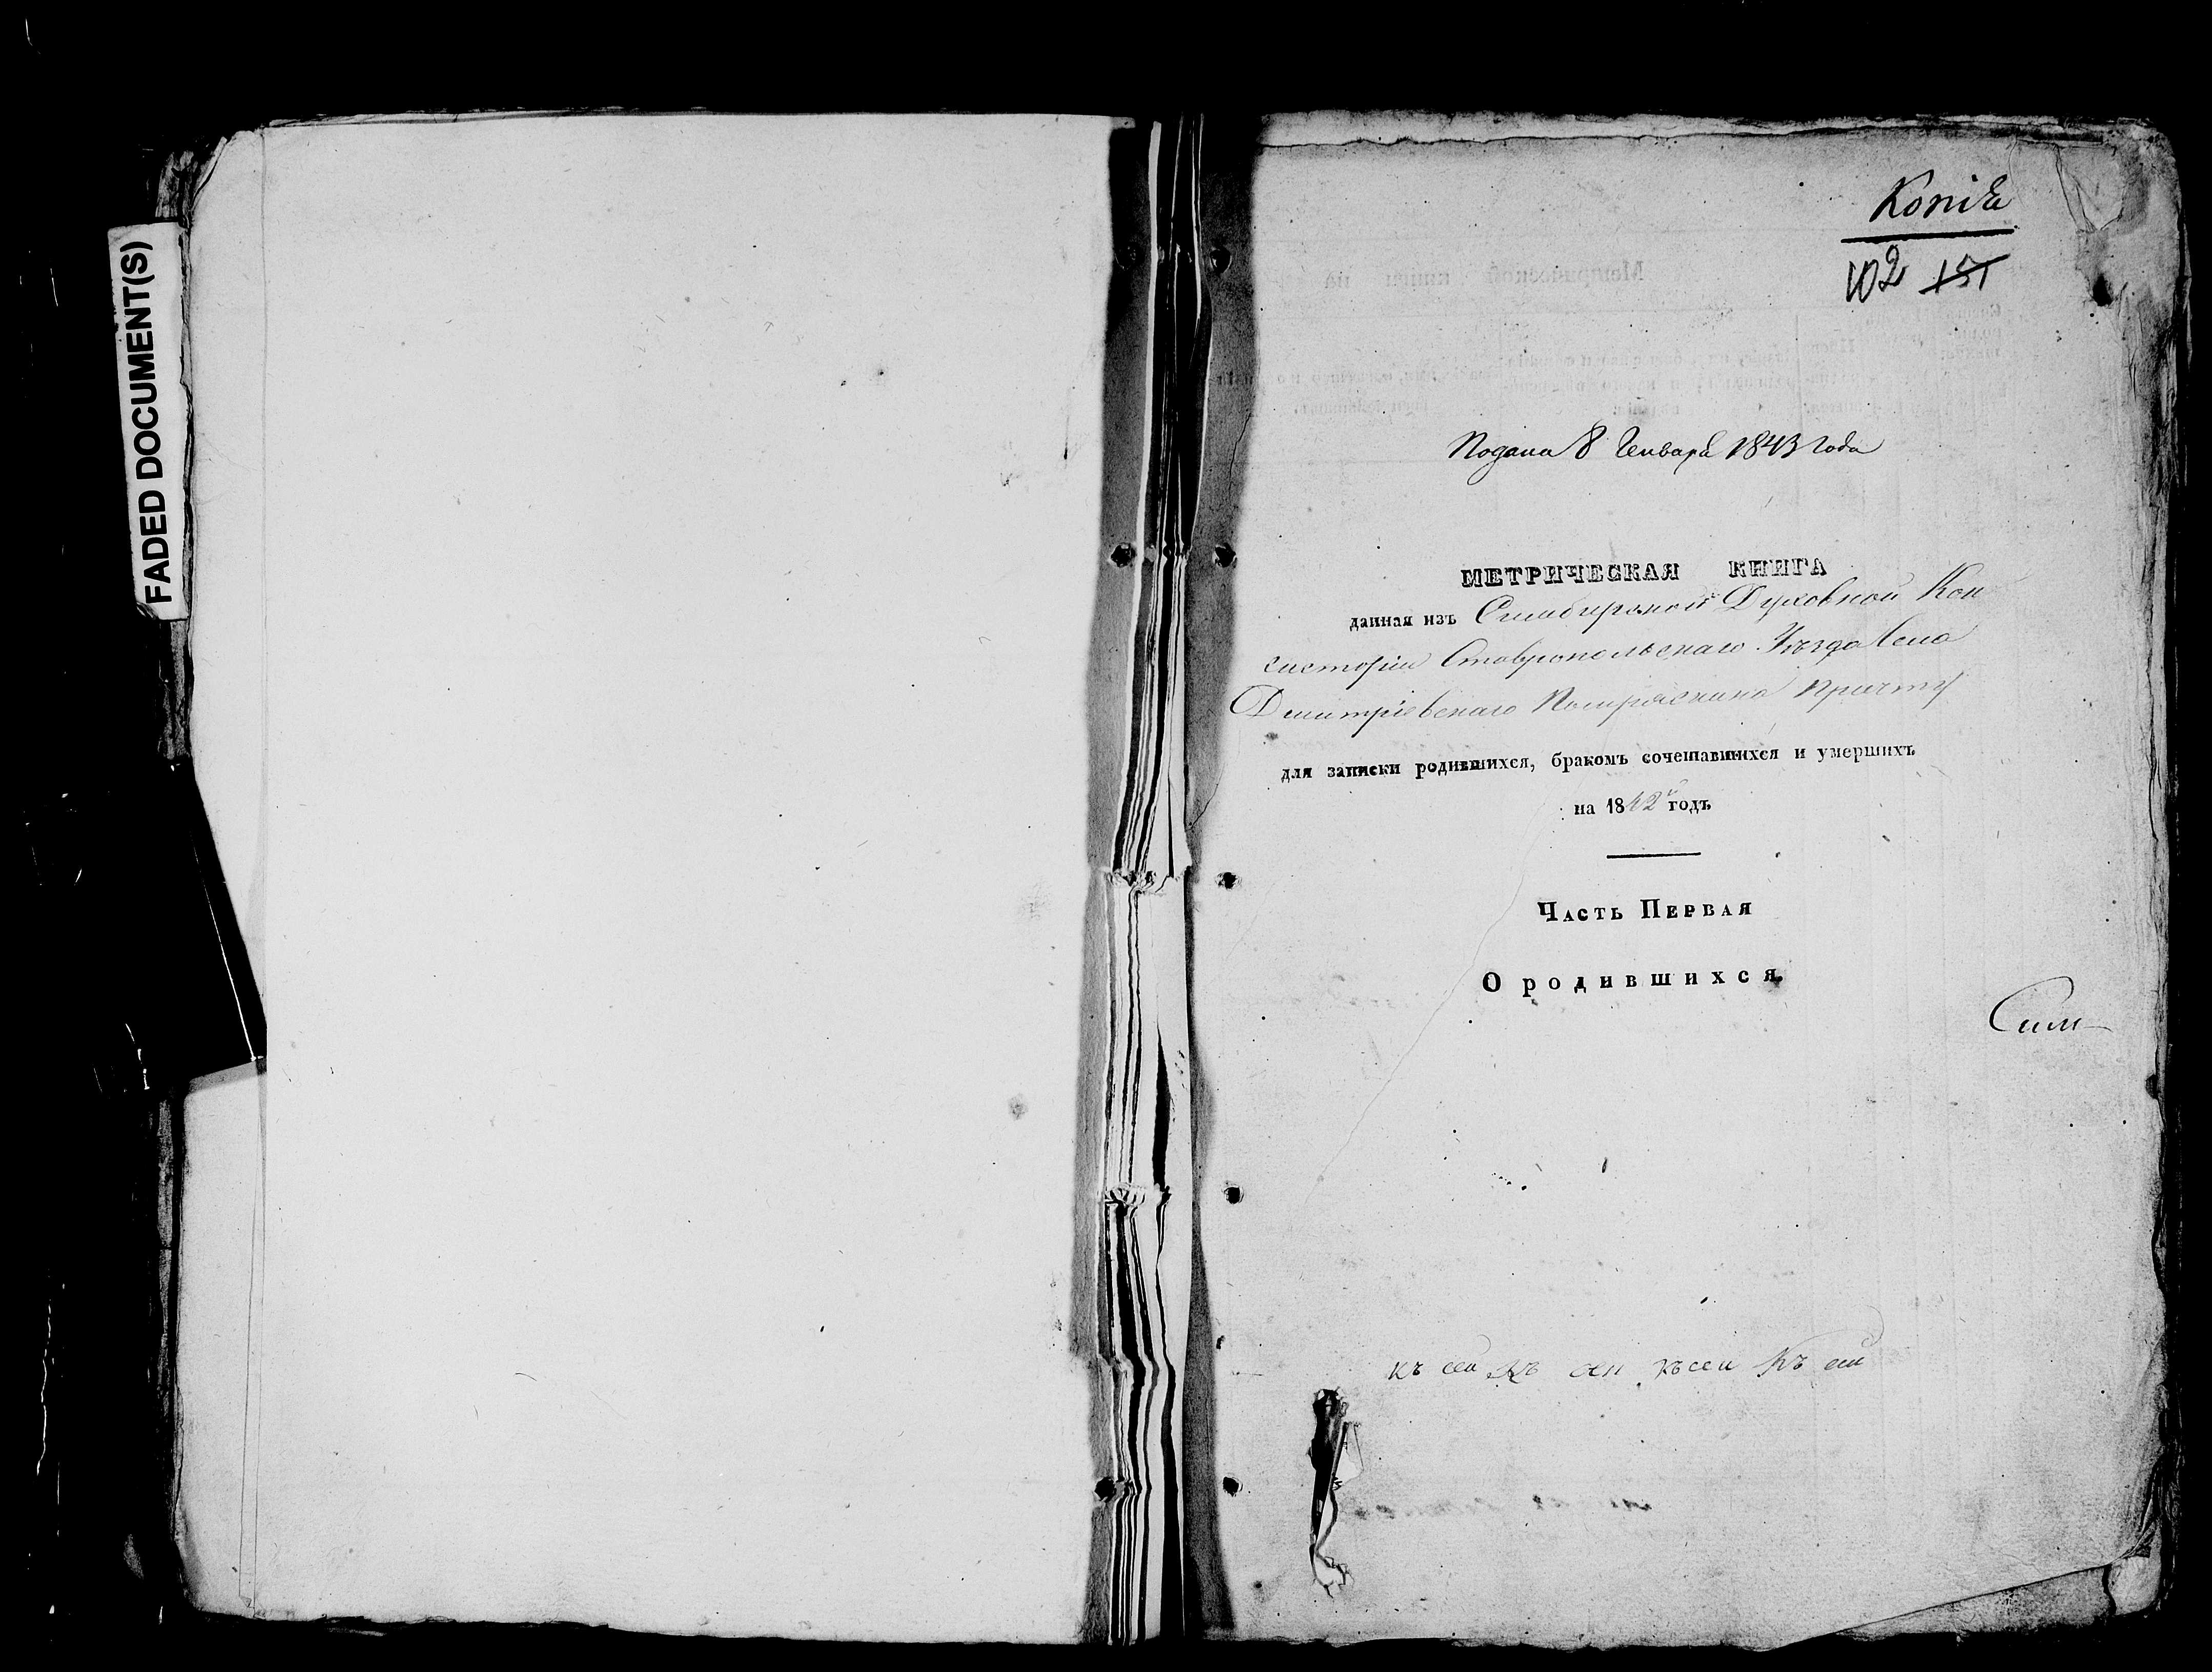 FADED DOCUMENT(S)
Копія
102 151
Подана 8 Генваря 1843 года
МЕТРИЧЕСКАЯ КНИГА
данная изъ Симбирской Духовной Кон
систоріи Ставропольскаго Уѣзда Села
Дмитріевскаго Помряскина Причту
для записки родившихся, бракомъ сочетавшихся и умершихъ
на 1842й годъ
Часть Первая
О родившихся
Сим
къ сей къ сей къ сей